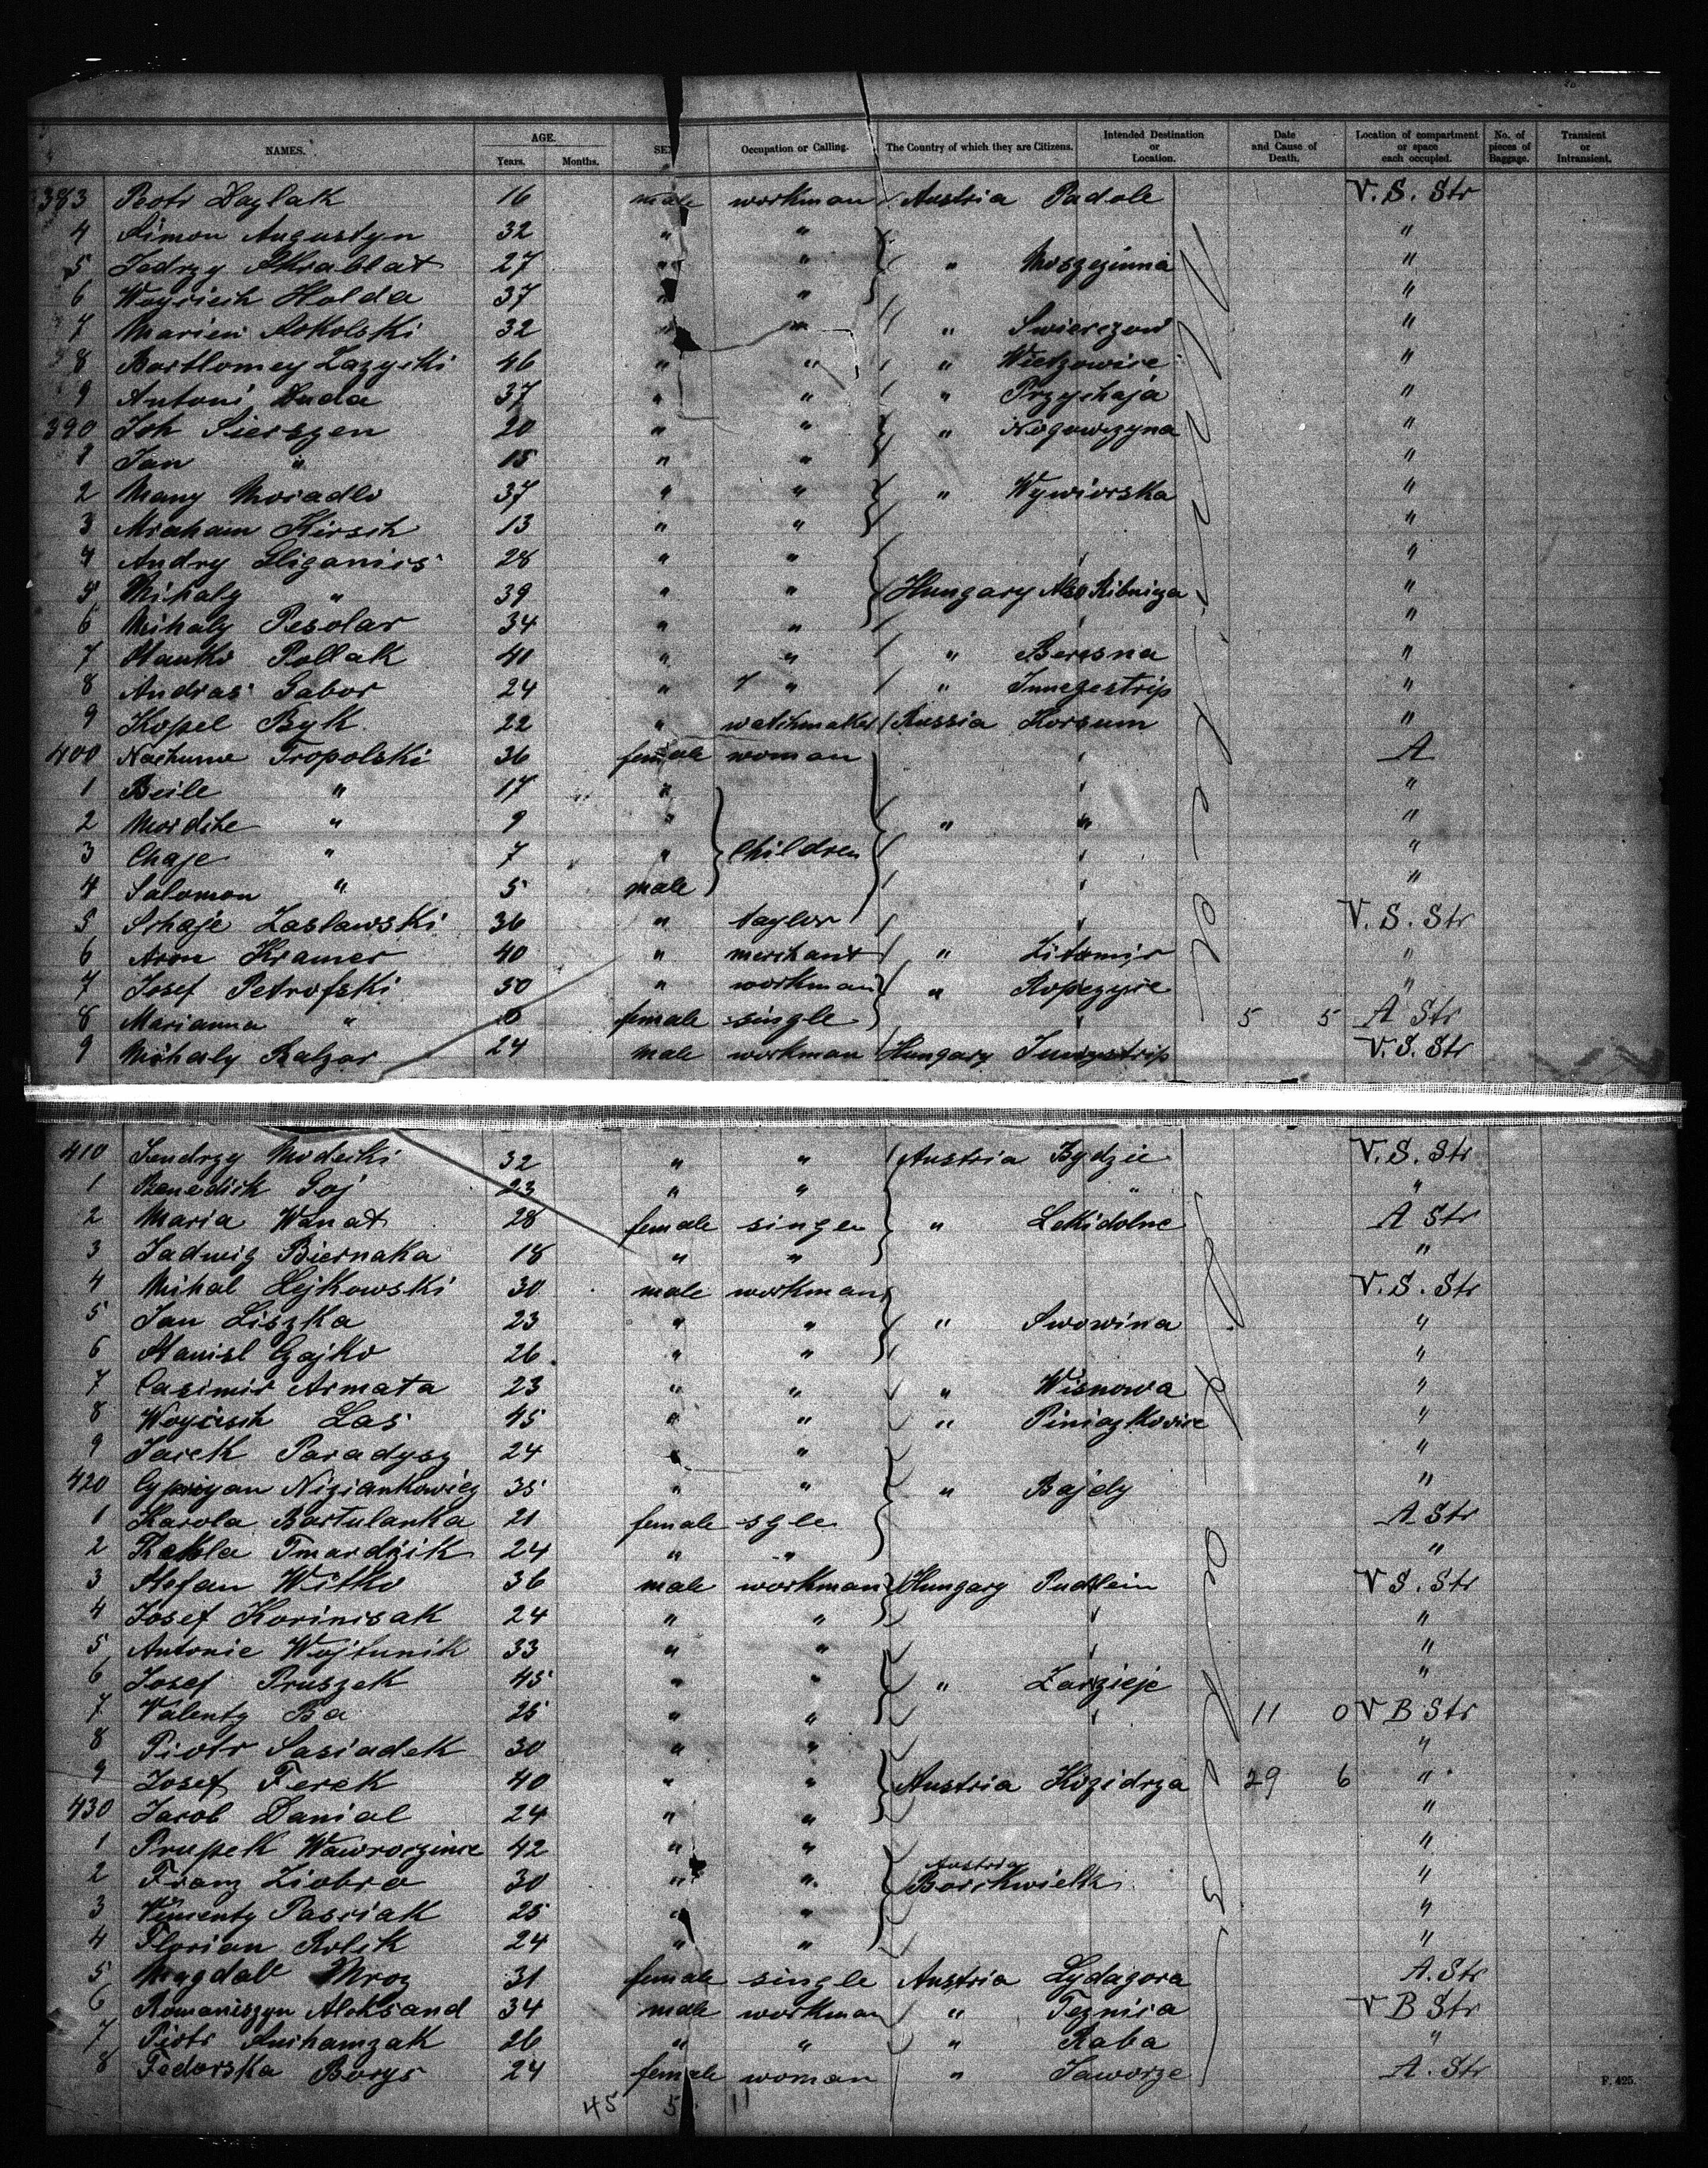 NAMES. AGE. Years. Months. SEX Occupation or Calling. The Country of which they are Citizens. Intended Destination or Location. Date and Cause of Death. Location of compartment or space each occupied. No. of pieces of Baggage. Transient or Intransient.
383 Piotr Daylak 16 male workman Austria Padole V. S. Str
4 Simon Augustyn 32 " " "
5 Jedrzy Skrablat 27 " " " Moszezinna "
6 Woyciech Holda 37 " " "
7 Marien Sokolski 32 " " " Swierczow "
8 Bartlomey Lazycki 46 " " " Wietzowice "
9 Antoni Duda 37 " " " Przychaja "
390 Joh Sierszen 20 " " " Nogowczyna "
1 Jan " 15 " " "
2 Many Mosiadlo 37 " " " Wywiorska "
3 Mraham Hirsch 13 " " "
4 Andry Gliganics 28 " " "
5 Mihaly " 39 " " Hungary Also Ribniza "
6 Mihaly Pesolar 34 " " "
7 Hanko Pollak 41 " " " Beresna "
8 Andras Gabor 24 " " " "
9 Kopel Byk 22 " watchmaker Russia Korsum "
400 Nachume Tropolski 36 female woman A
1 Beile " 17 " "
2 Mordche " 9 " " " "
3 Chaje " 7 " Children "
4 Salomon " 5 male "
5 Schaje Zaslawski 36 " taylor V. S. Str
6 Aron Kramer 40 " merchant " Zitomir "
7 Josef Petrofski 50 " workman " Ropczyce "
8 Marianna " 6 female single 5 5 A Str
9 Mihaly Kalzar 24 male workman Hungary V. S. Str
410 Jendrzy Modecki 32 " " Austria Bydzie V. S. Str
1 Benedick Goj 23 " " " "
2 Maria Wanat 28 female singen " Lekidolne A Str
3 Jadwig Biernaka 18 " " "
4 Mihal Lejkowski 30 male workman V. S. Str
5 Jan Liszka 23 " " " Swowina "
6 Stanisl Gajko 26 " " "
7 Casimir Armata 23 " " " Wisnowa "
8 Woyciech Las 45 " " " Piniazkowice "
9 Jacek Paradysz 24 " " "
420 Cypriyan Niziankowicz 35 " " " Bajdy "
1 Karola Bartulanka 21 female sgle A Str
2 Rekla Tmardzik 24 " " "
3 Stefan Witko 36 male workman Hungary Pudlein V S. Str
4 Josef Korinisak 24 " " "
5 Antonie Wojtunik 33 " " "
6 Josef Pruszek 45 " " " Zarzieje "
7 Valenty Ba 25 " " 11 0 V B Str
8 Piotr Sasiadek 30 " " "
9 Josef Ferek 40 " " Austria Kozidrza 29 6 "
430 Jacob Danial 24 " " "
1 Prupek Wawrozinie 42 " " "
2 Franz Ziobro 30 " " Austria Borckwielk "
3 Vincenty Pasciak 25 " " "
4 Florian Rolik 24 " " "
5 Magdale Mroz 31 female single Austria Lydagora A. Str
6 Romaniszyn Aleksand 34 male workman " Teznica V B Str
7 Piotr Suchamzak 26 " " " Raba "
8 Fedorska Borys 24 female woman " Jaworze A. Str
45 5 11
F. 425.